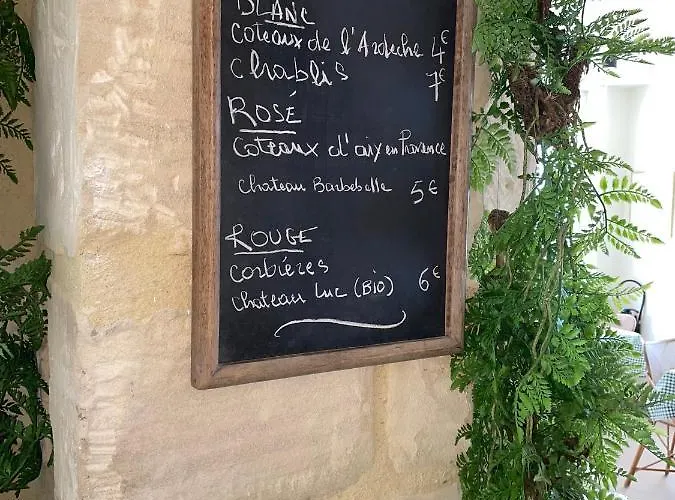 BLANC
Coteaux de l'Ardeche 4€
Chablis 7€
ROSÉ
Coteaux d'aix en Provence
Chateau Barbebelle 5€
ROUGE
Corbières
Chateau Luc (BIO) 6€